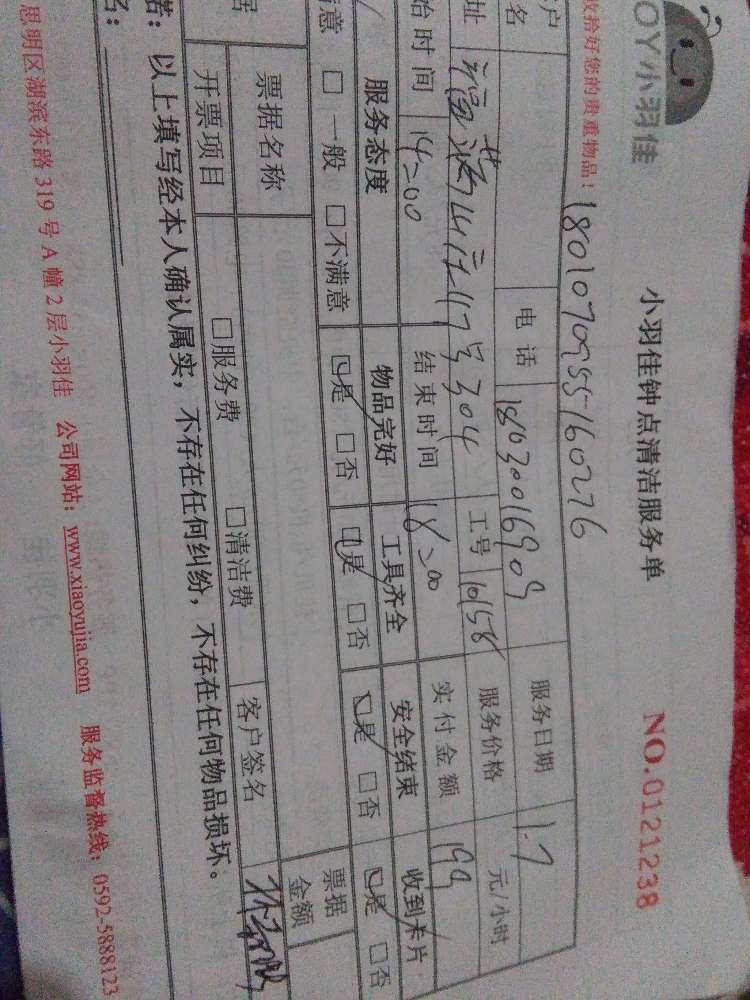 OY小羽佳
小羽佳钟点清洁服务单
NO.0121238
收拾好您的贵重物品!
1801070955-160276
户名 电话 18030016909 服务日期 1.7
址 福满山庄117号304 工号 10158 服务价格 元/小时
始时间 14:00 结束时间 18:00 实付金额 199
服务态度 物品完好 工具齐全 安全结束 收到卡片
满意 □一般 □不满意 ☑是 □否 ☑是 □否 ☑是 □否 ☑是 □否
据 票据名称 票据金额
开票项目 □服务费 □清洁费 客户签名
诺:以上填写经本人确认属实,不存在任何纠纷,不存在任何物品损坏。
名:
思明区湖滨东路319号A幢2层小羽佳 公司网站:www.xiaoyujia.com 服务监督热线:0592-5888123